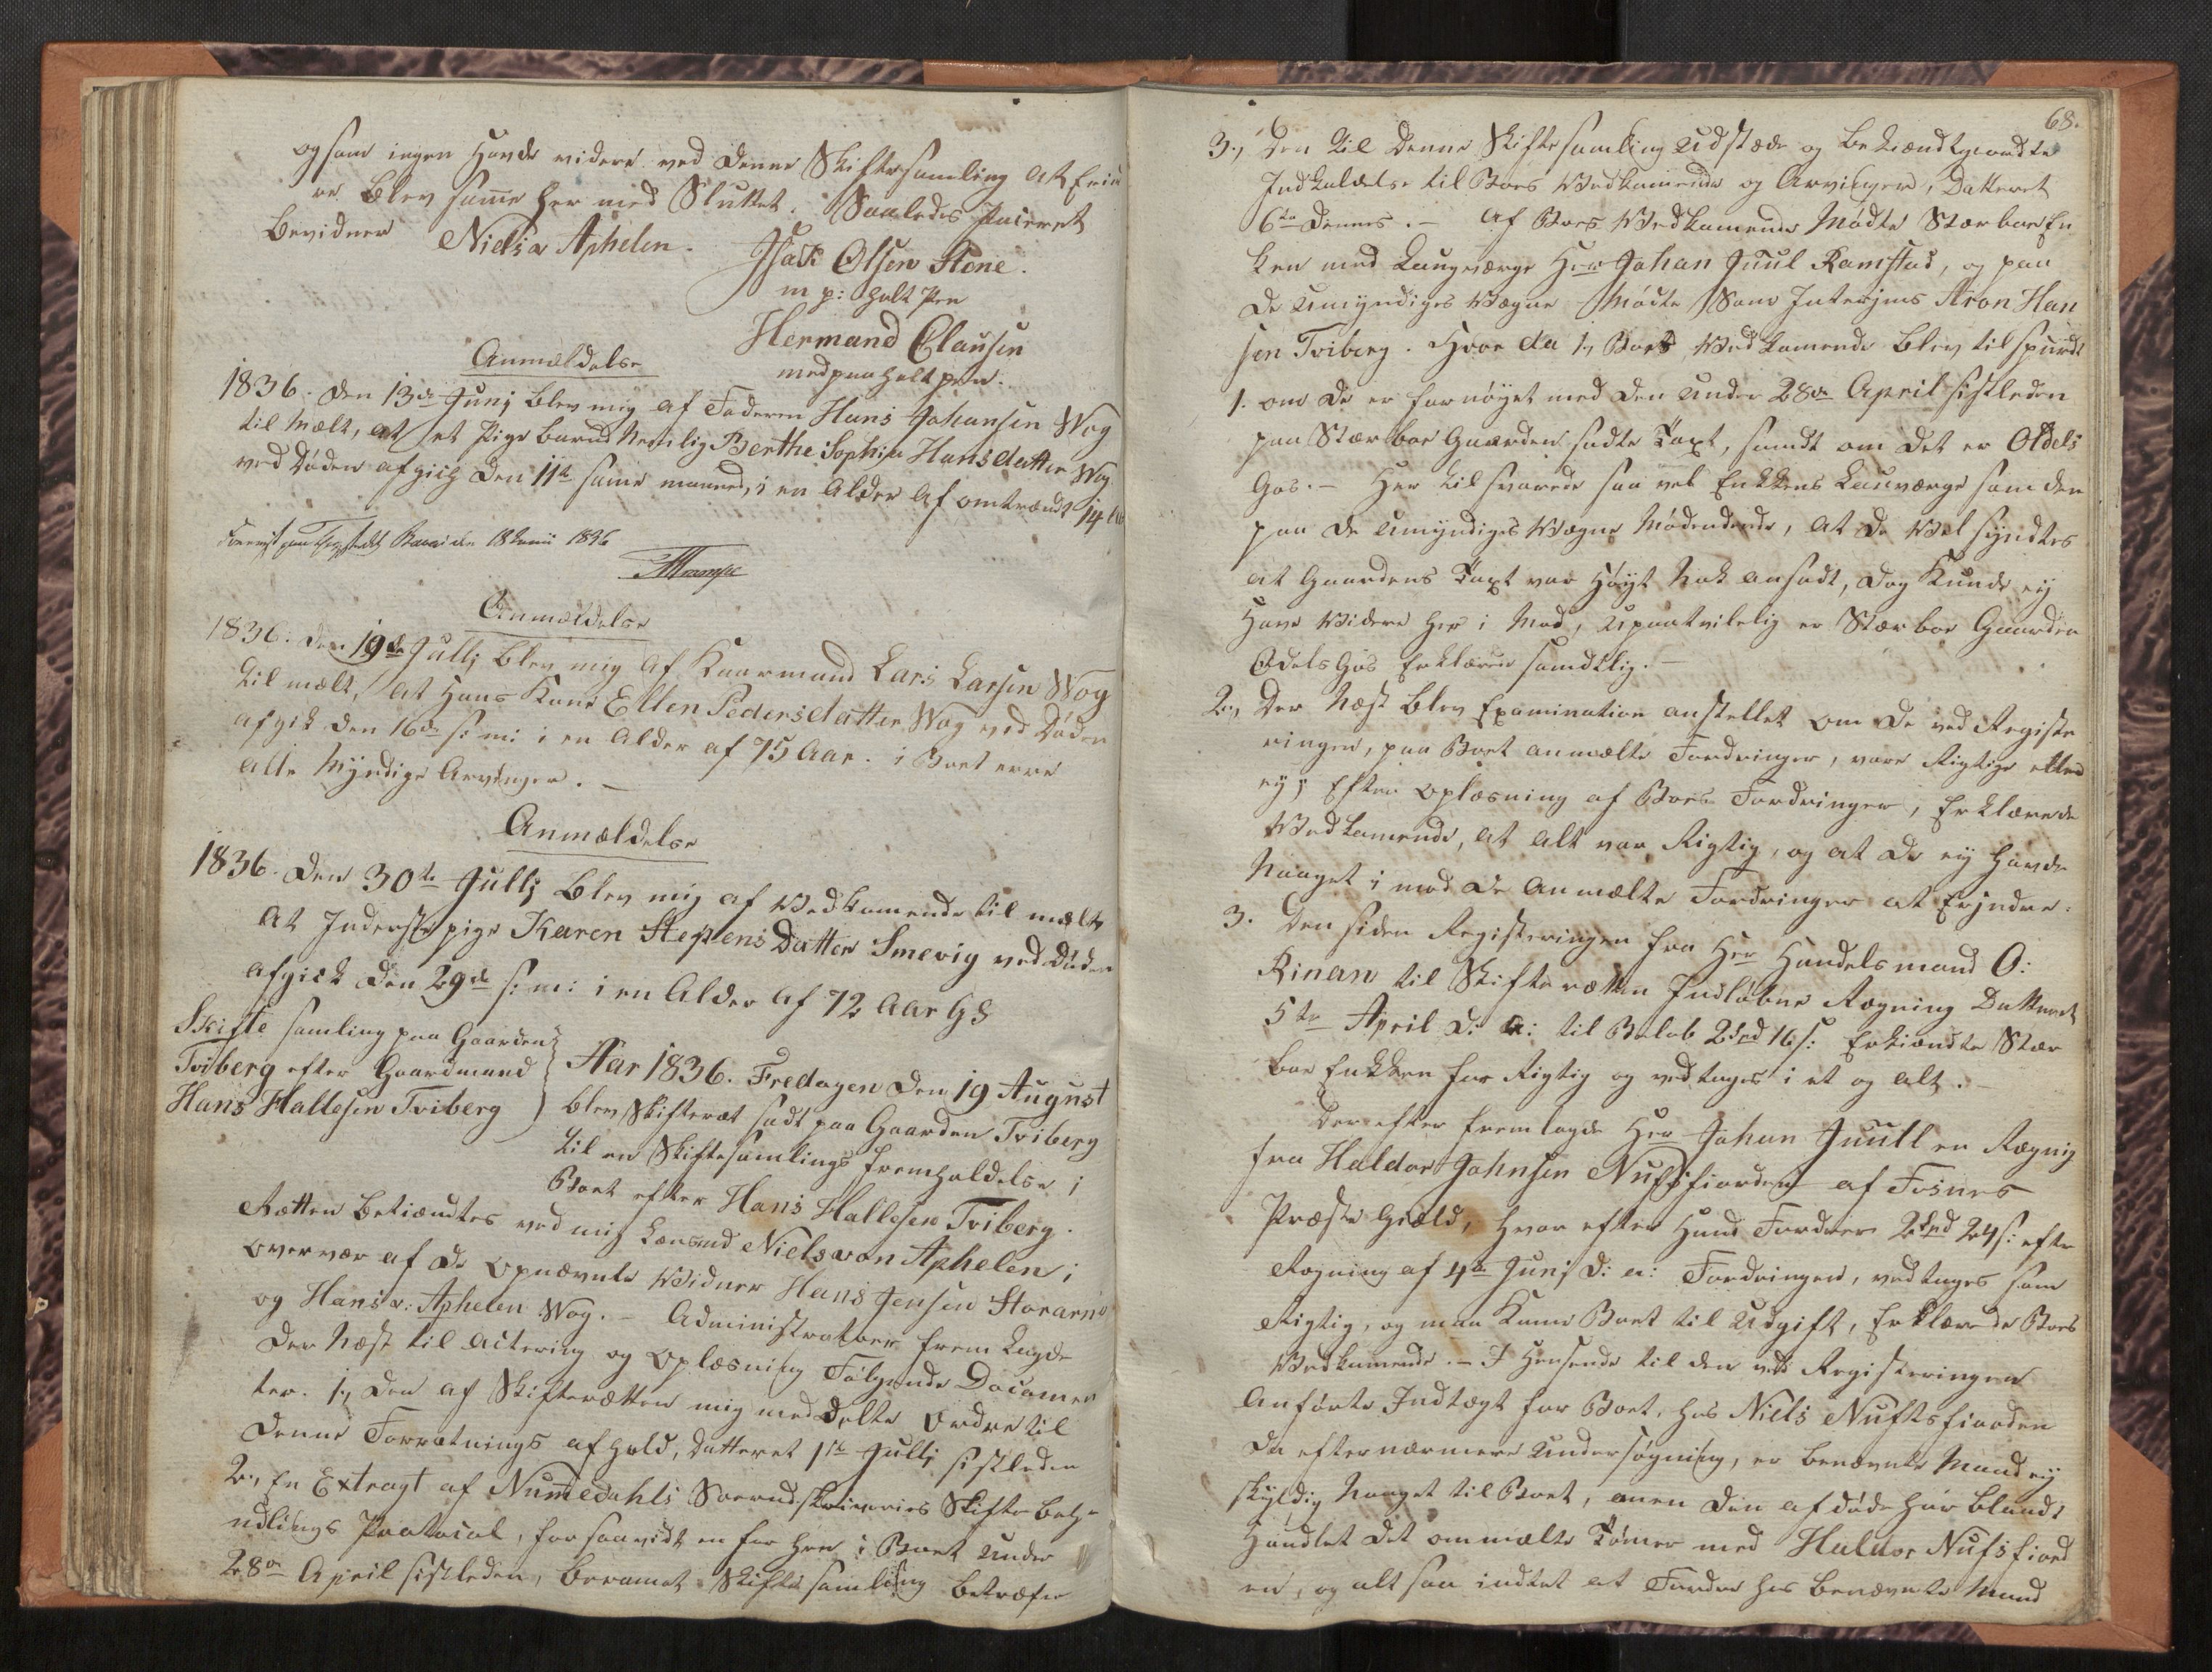 og som ingen havde videre ved denne Skiftesamling at erin
re blev samme her med Sluttet. Saaledes Paseret
Bevidner Niels v Aphelen.
Isak Olsen Stene.
m p: holt Pen
Hermand Clausen
med paaholt pen.
Anmældelse
1836. den 13de Junj blev mig af Faderen Hans Johansen Wog
til mælt, at et Pige barn Nemlig Berthe Sophia Hansdatter Wog
ved Døden afgich den 11te samme maaned, i en Alder af omtrændt 14
1836
Anmældelse
1836. den 19de Jullj blev mig af Kaarmand Lars Larsen Wog
til mælt, at Hans Kone Ellen Pedersdatter Wog ved Døden
afgik den 16de s: m: i en Alder af 75 Aar. i Boet erre
alle Myndige Arvinger. –
Anmældelse
1836. den 30te Jullj blev mig af Vedkomende til mælt
at Inderste pige Karen Steffens Datter Smevig ved Døden
afgick den 29de s: m: i en Alder af 72 Aar
Skifte samling paa Gaarden
Tviberg efter Gaardmand
Hans Hallesen Tviberg
Aar 1836. Fredagen den 19 August
blev Skifteret sadt paa Gaarden Tviberg
til en Skiftesamlings fremholdelse i
Boet efter Hans Hallesen Tviberg.
Retten betiændtes ved mig Lensmd Niels von Aphelen i
overvær af de opnævnte Vidner Hans Jensen Storarne
og Hans v: Aphelen Wog. – Administrator frem lagde
der Næst til Acterinq og oplæsning Følgende Documen
ter. 1, den af Skifteretten mig meddelte Ordre til
denne Forretnings afhold, datteret 1te Jullj sistleden
2, En Extragt af Nummedahls Sorendskriveries Skifte beha
ndlings Protocol, for saavidt en for her i Boet under
28de April sistleden, berammet Skifte samling betræfer
68.
3, Den til denne Skiftesamling udstæde og bekiændtgiordte
Indkaldelse til Boes Vedkomende og Arvinger, datteret
6te dennes. – Af Boes Vedkomende Mødte Stærboe En
ken med Laugværge Herr Johan Juul Ramstad, og paa
de umyndiges Vægne Mødte som Interjms Aron Han
sen Tviberg. Hvor da 1, Boets Vedkomende blev tilspurdt
1. om de er fornøyet med den under 28de April sistleden
paa Stærboe Gaarden sadte Taxt, samdt om det er Oddels
Gos. – Her til svarede saa vel Enkkens Lauværge som den
paa de umyndiges Vægne Mødendende, at de vel syndtes
at Gaardens Taxt var Høyt Nok ansadt, dog Kunde ej
Have Videre her i Mod, upaatvilelig er Stærboe Gaarden
Odels Gos Erklærer samdtlig. –
2, Der Næst blev Examination anstellet om de ved Registe
ringen, paa Boet anmælte Fordringer, vare Rigtige eller
ej; Efter oplæsning af Boes Fordringer, Erklærede
Vedkomende, at alt var Rigtig, og at de ej havde
Naaget i mod de anmælte Fordringer at Erjndre.
3. Den siden Registeringen fra Herr Handelsmand O:
Rinan til Skifteretten Indløbne Regning datteret
5te April d: a: til Beløb 2 Spd 16 s: Erkiændte Stær
boe Enkken for Rigtig og vedtages i et og alt. –
Derefter fremlagde Herr Johan Juull en Regnig
fra Haldor Johnsen Nufsfiorden af Fosnes
Præste Giæld, hvor efter Hand Fordrer 2 Spd 24 s: efter
Regning af 4de Junj d: a: Fordringen, vedtages som
Rigtig, og maa Kome Boet til Udgift, Erklærede Boes
Vedkomende. – I Hensende til den ved Registeringen
Anførte Indtægt for Boet, hos Niels Nuftsfiorden
da efter nærmere undersøgning, er benævnte Mand ej
skyldig Naaget til Boet, men den afdøde har blandt
Handlet det ommælte Tømer med Haldor Nufsfiord
en, og altsaa indtet at Fordre hos benævnte Mand